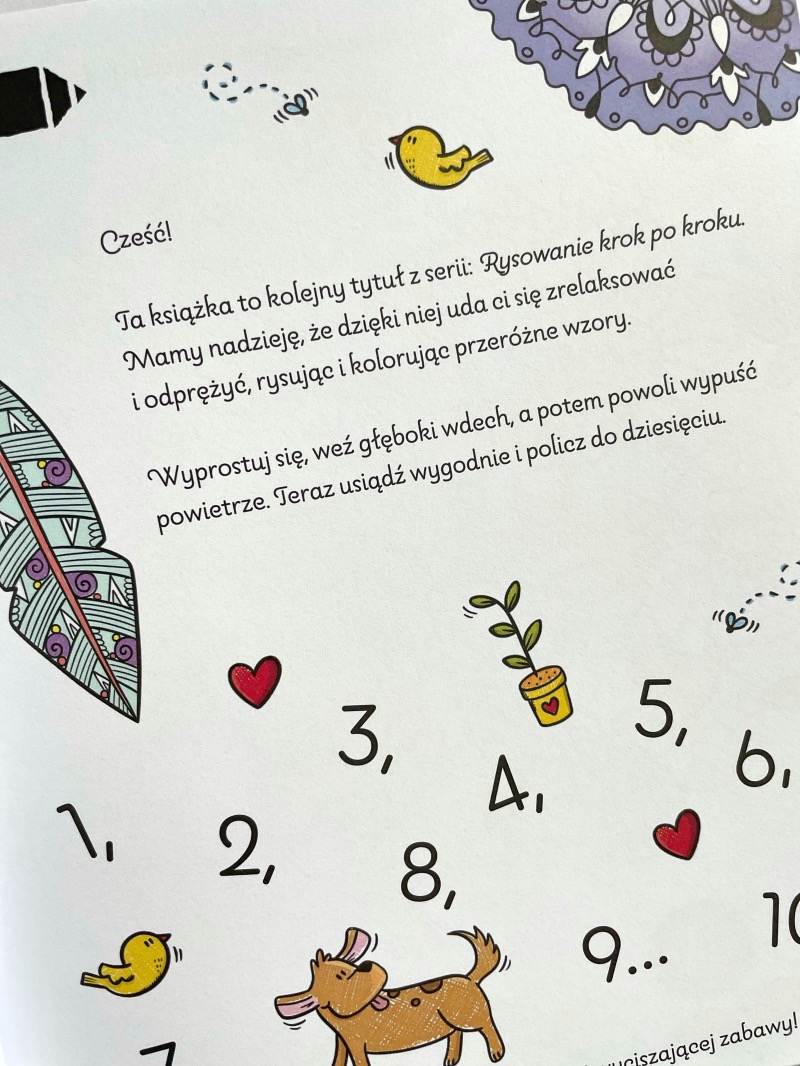 Cześć!
Ta książka to kolejny tytuł z serii: Rysowanie krok po kroku.
Mamy nadzieję, że dzięki niej uda ci się zrelaksować
i odprężyć, rysując i kolorując przeróżne wzory.
Wyprostuj się, weź głęboki wdech, a potem powoli wypuść
powietrze. Teraz usiądź wygodnie i policz do dziesięciu.
1, 2, 3, 4, 5, 6,
7
8, 9... 10
zabawy!